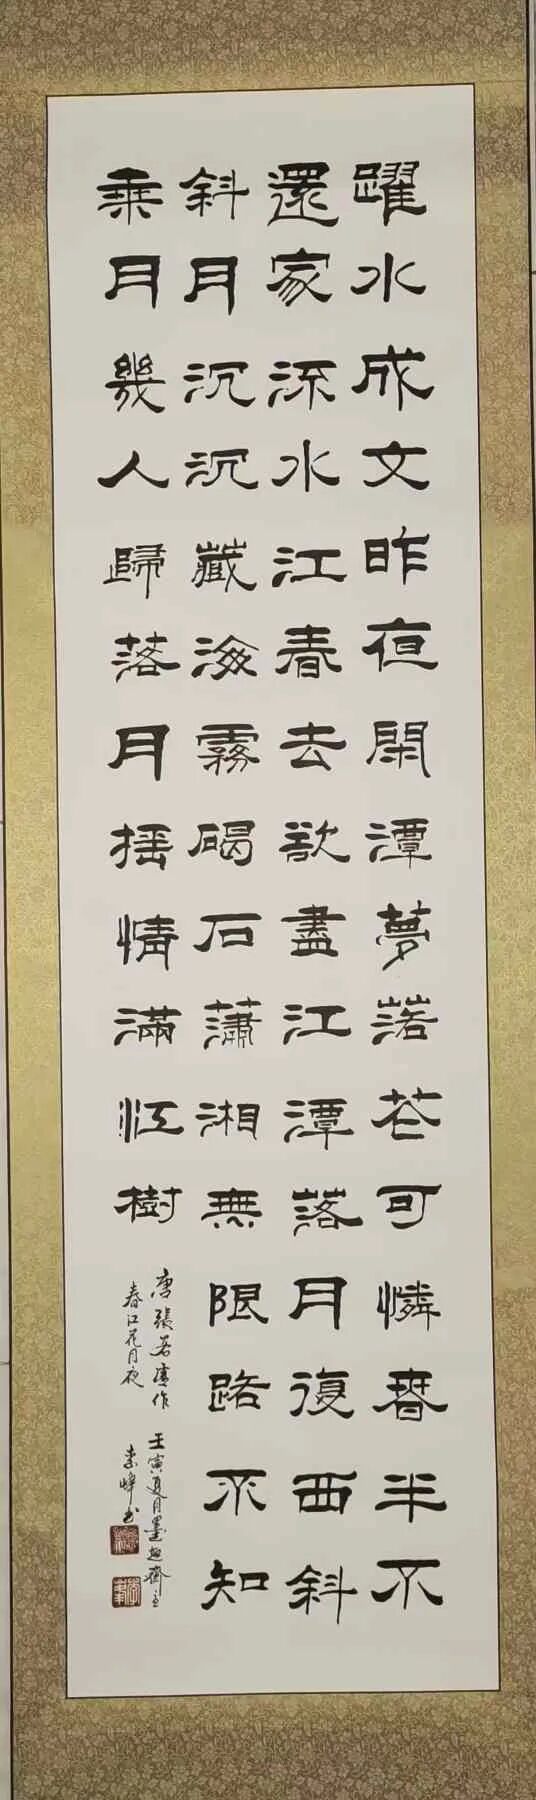 躍水成文昨夜閒潭夢落花可憐春半不
還家流水江春去欲盡江潭落月復西斜
斜月沉沉藏海霧碣石蕭湘無限路不知
乘月幾人歸落月搖情滿江樹
唐張若虛作
春江花月夜
壬寅夏月墨趣齋主
書